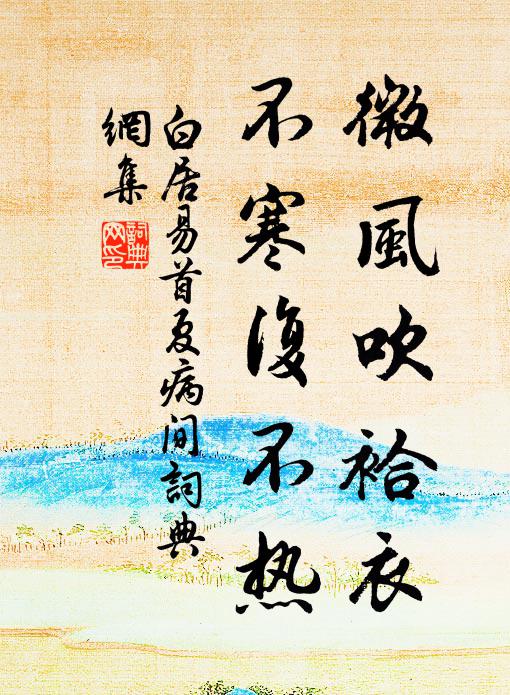 微風吹袷衣
不寒復不热
白居易首夏病间詞典
網集
詞典
网印